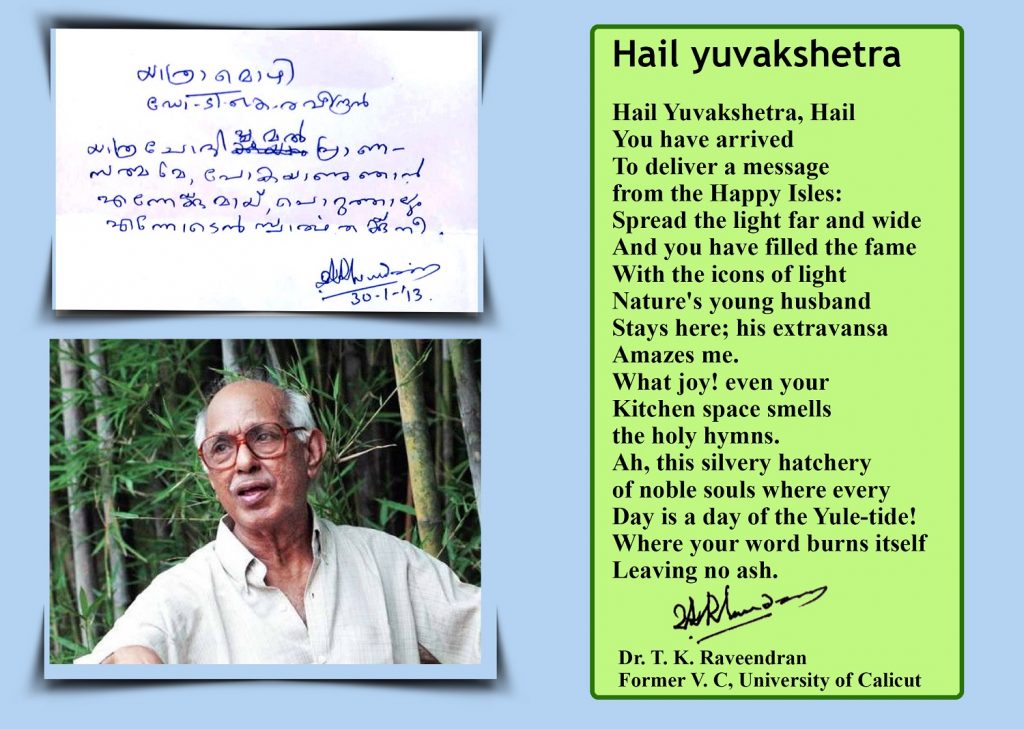 യാത്രാമൊഴി
ഡോ. ടി. കെ. രവീന്ദ്രൻ
യാത്ര മൽ പ്രാണ-
പോകയാണു ഞാൻ
എന്നേക്കുമായ്, പൊറുത്താലും
എന്നോടെൻ നീ.
30-1-'13.
Hail yuvakshetra
Hail Yuvakshetra, Hail
You have arrived
To deliver a message
from the Happy Isles:
Spread the light far and wide
And you have filled the fame
With the icons of light
Nature's young husband
Stays here; his extravansa
Amazes me.
What joy! even your
Kitchen space smells
the holy hymns.
Ah, this silvery hatchery
of noble souls where every
Day is a day of the Yule-tide!
Where your word burns itself
Leaving no ash.
Dr. T. K. Raveendran
Former V. C, University of Calicut